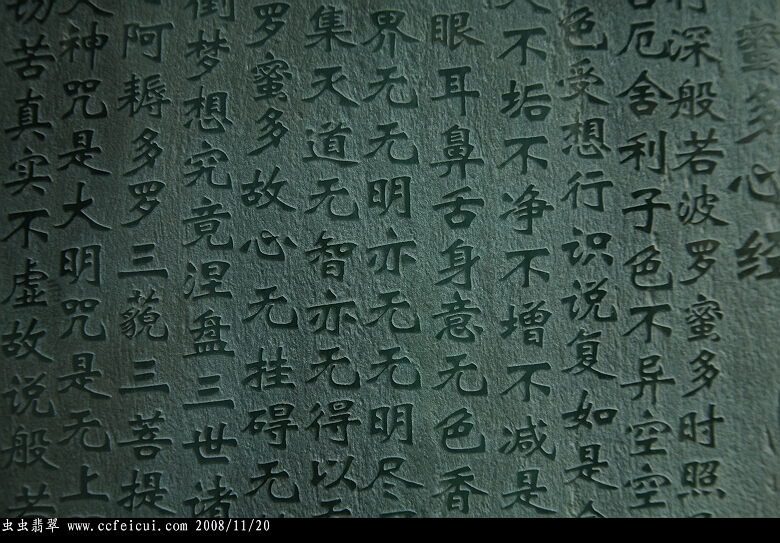 蜜多心经
行深般若波罗蜜多时照
苦厄舍利子色不异空空
色受想行识说复如是
不垢不净不增不减是
眼耳鼻舌身意无色香
界无无明亦无无明尽
集灭道无智亦无得以无
罗蜜多故心无挂碍无
倒梦想究竟涅盘三世诸
阿耨多罗三藐三菩提
大神咒是大明咒是无上
切苦真实不虚故说般若
虫虫翡翠 www.ccfeicui.com 2008/11/20